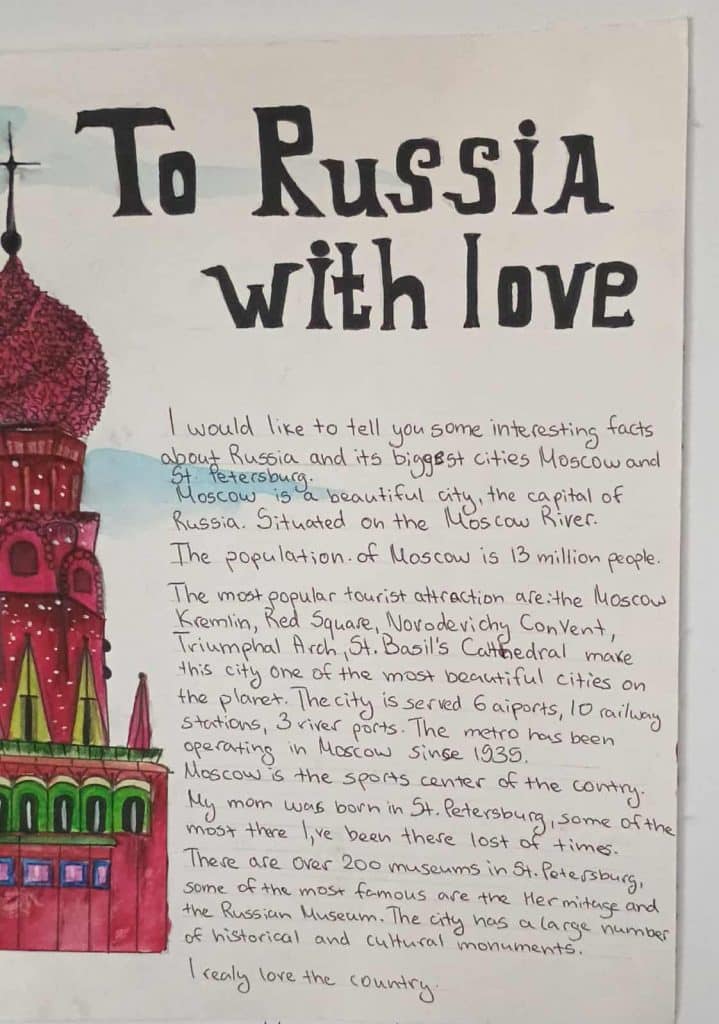 To Russia
with love
I would like to tell you some interesting facts
about Russia and its biggest cities Moscow and
St. Petersburg.
Moscow is a beautiful city, the capital of
Russia. Situated on the Moscow River.
The population. of Moscow is 13 million people.
The most popular tourist attraction are: the Moscow
Kremlin, Red Square, Novodevichy Convent,
Triumphal Arch, St. Basil's Cathedral make
this city one of the most beautiful cities on
the planet. The city is served 6 aiports, 10 railway
stations, 3 river ports. The metro has been
operating in Moscow sinse 1935.
Moscow is the sports center of the contry.
My mom was born in St. Petersburg, some of the
most there I,ve been there lost of times.
There are over 200 museums in St. Petersburg,
some of the most famous are the Hermitage and
the Russian Museum. The city has a large number
of historical and cultural monuments.
I realy love the country.